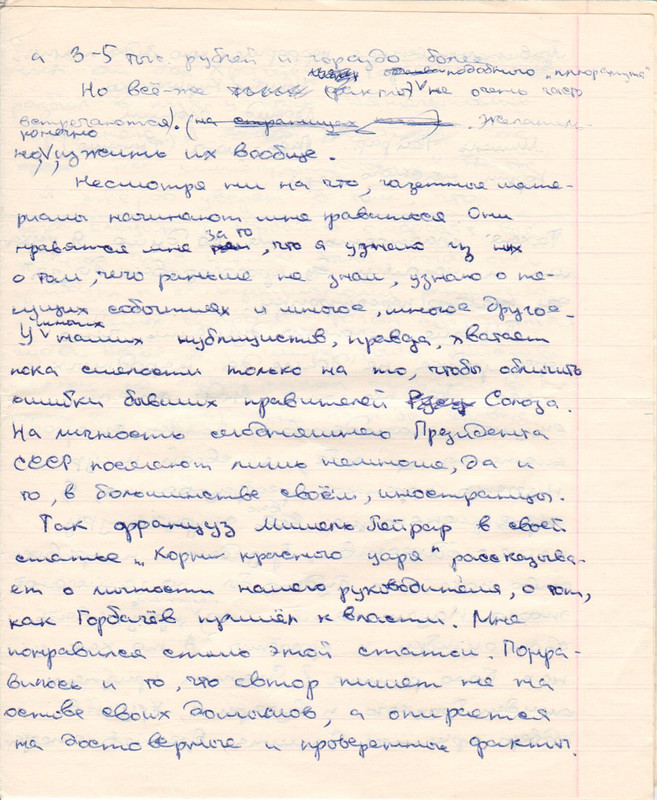 а 3-5 тыс. рублей и гораздо более.
подобного „плюрализма"
Но всё-же факты не очень часто
встречаются). (на страницах Желатель-
конечно
но, изжить их вообще.
Несмотря ни на что, газетные мате-
риалы начинают мне нравиться. Они
за то
нравятся мне, что я узнаю из них
о том, чего раньше не знал, узнаю о те-
кущих событиях и многое, многое другое.
многих
У наших публицистов, правда, хватает
пока смелости только на то, чтобы обличить
ошибки бывших правителей Союза.
На личность сегодняшнего Президента
СССР посягают лишь немногие, да и
то, в большинстве своём, иностранцы.
Так француз Мишель Тейрар в своей
статье „Корни красного царя" рассказыва-
ет о личности нашего руководителя, о том,
как Горбачёв пришёл к власти. Мне
понравился стиль этой статьи. Понра-
вилось и то, что автор пишет не на
основе своих домыслов, а опирается
на достоверные и проверенные факты.